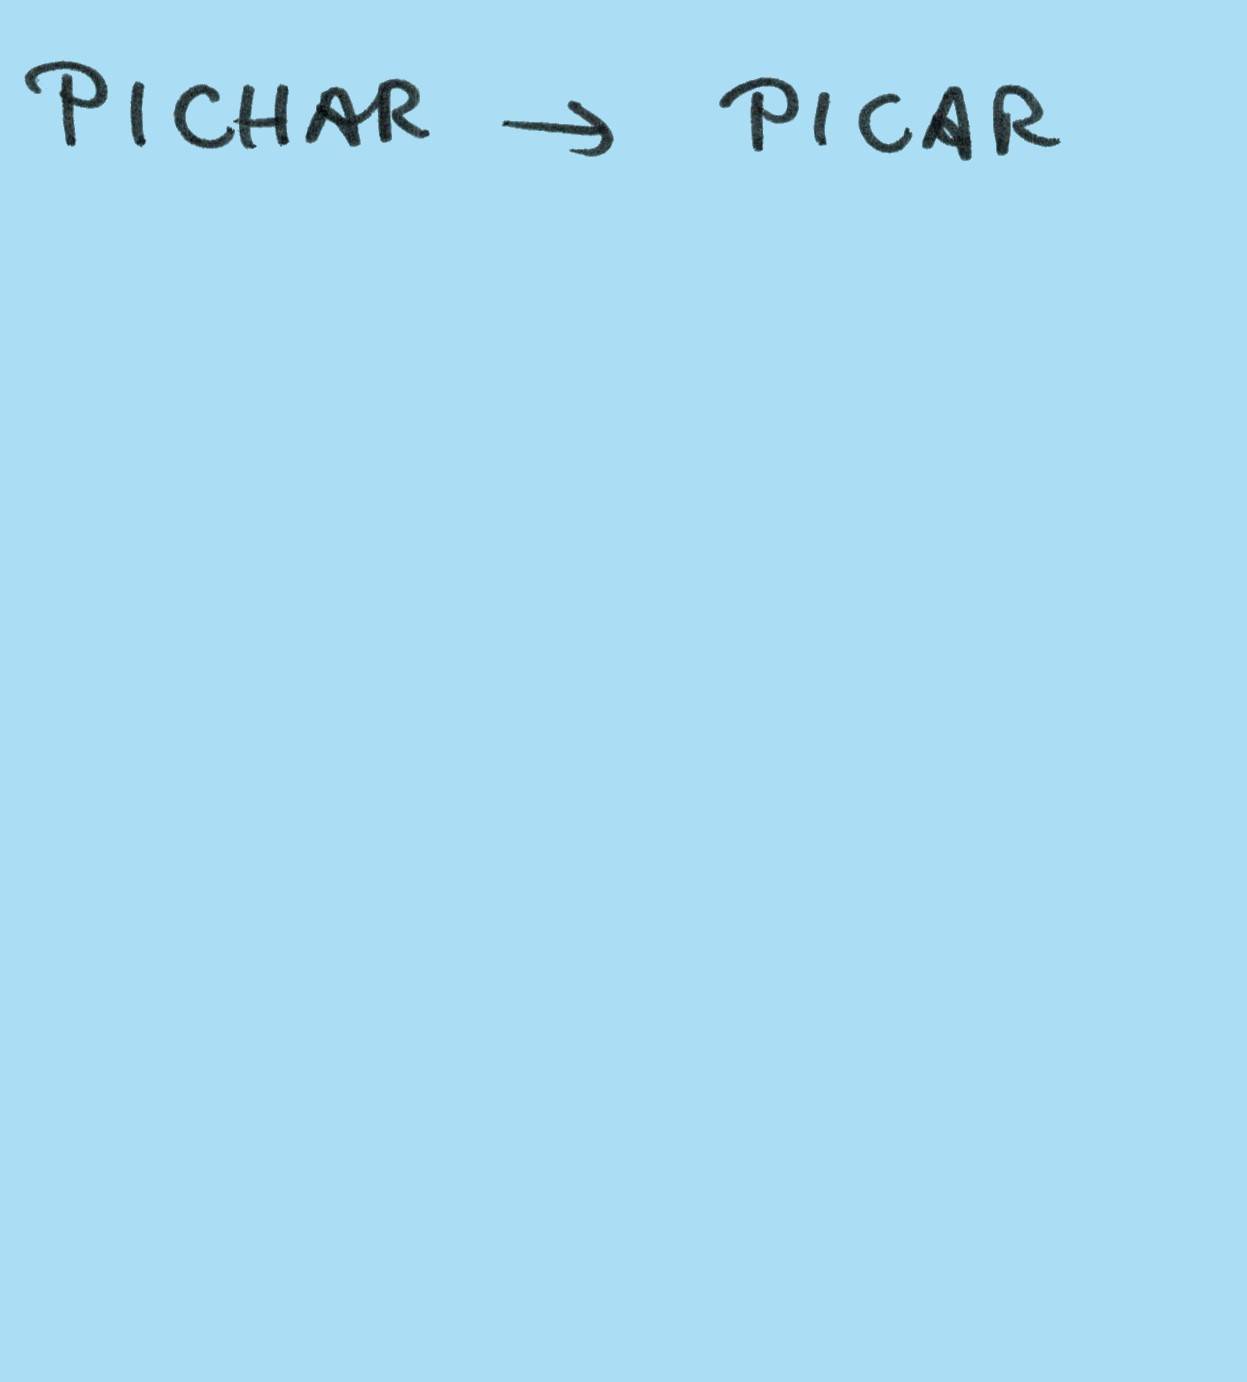 PICHAR → PICAR